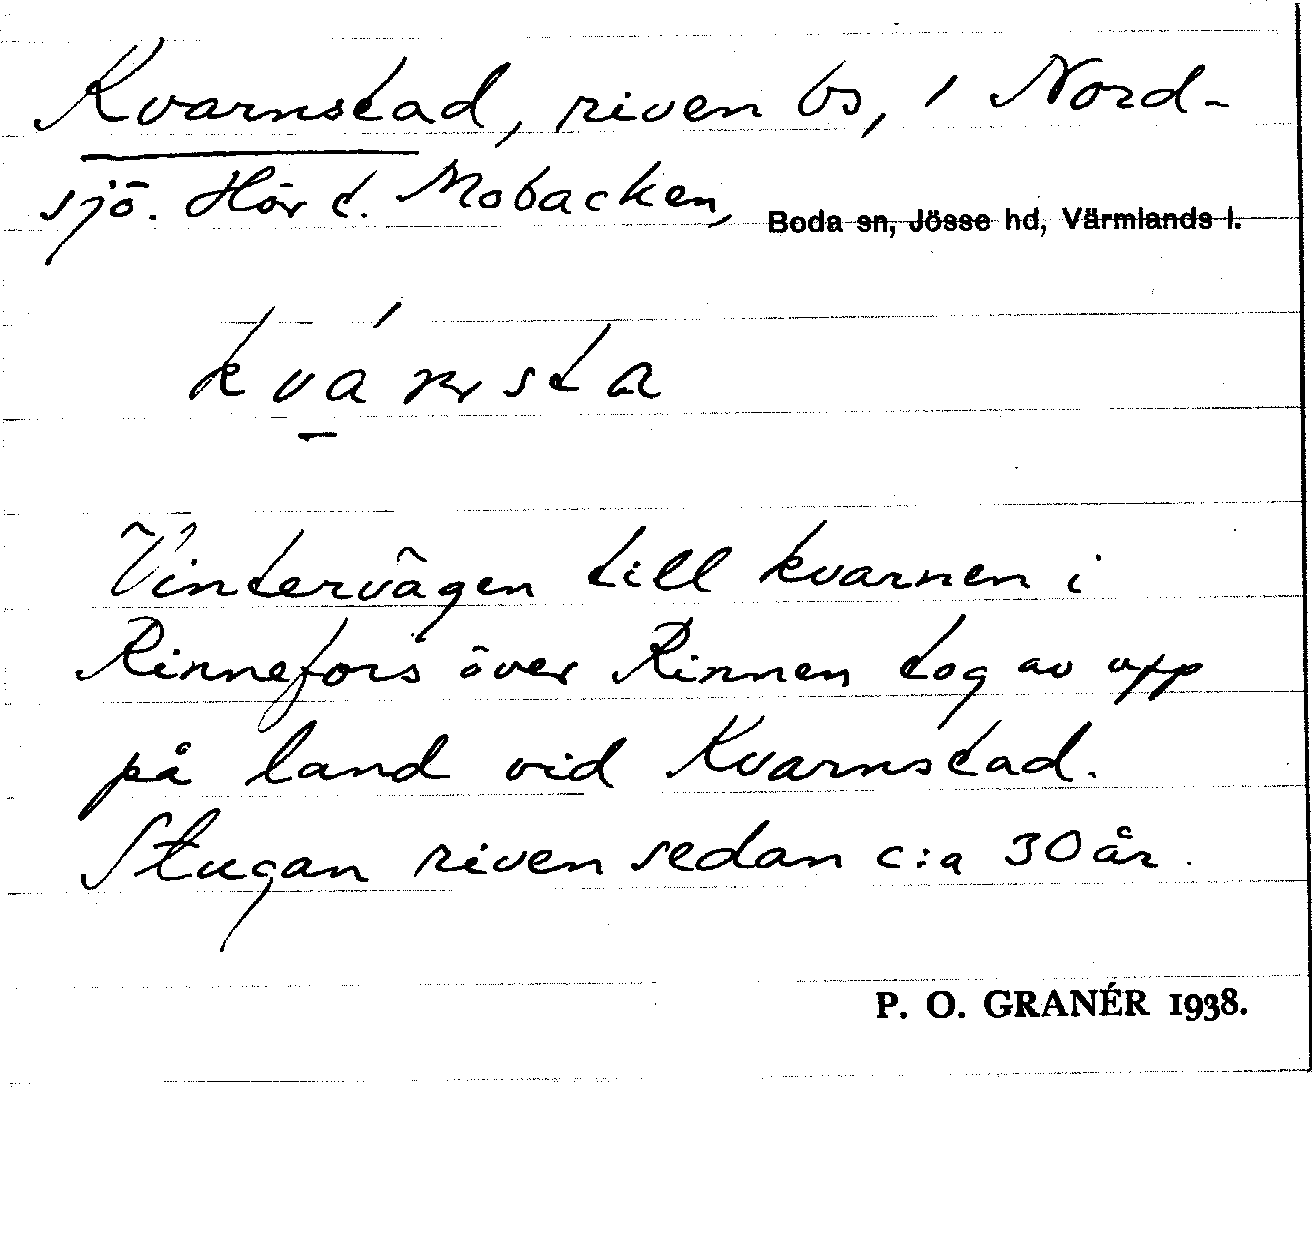 Kvarnstad, riven bs, 1 Nord-
sjö. Hör t. Mobacken, Boda sn, Jösse hd, Värmlands l.
Vintervägen till kvarnen i
Rinnefors över Rinnen tog av upp
på land vid Kvarnstad.
Stugan riven sedan c:a 30 år.
P. O. GRANÉR 1938.